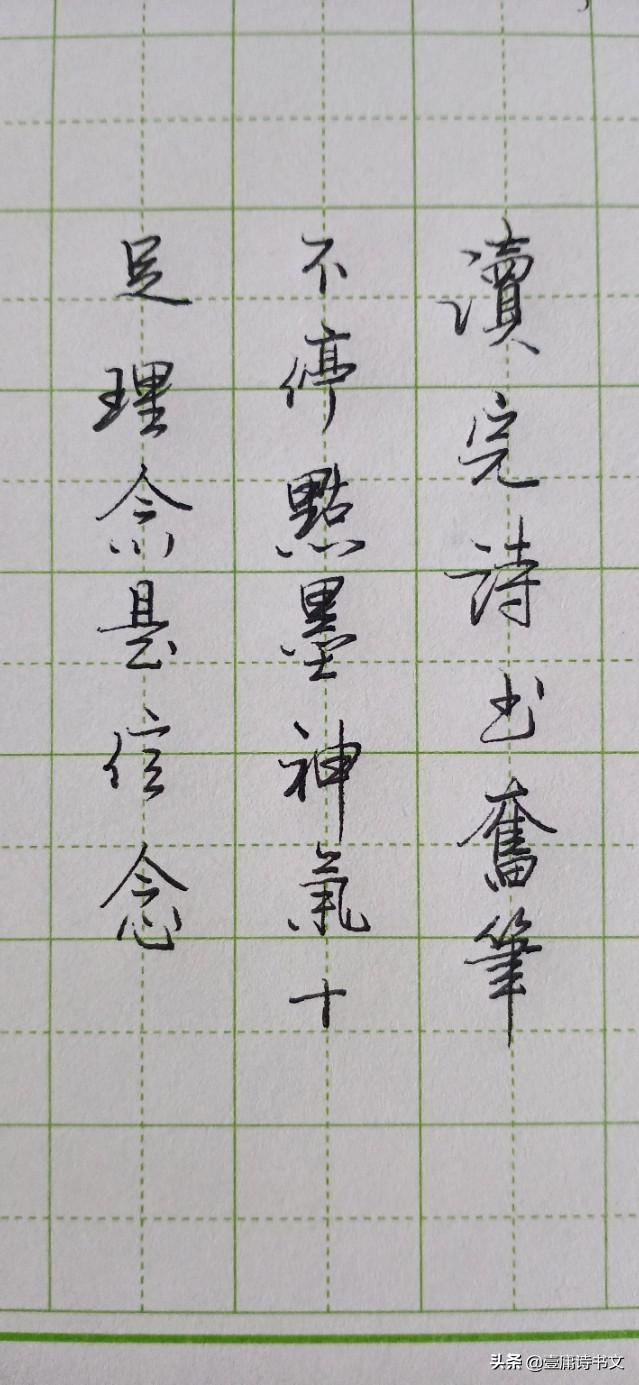 讀完詩书奮筆
不停點墨神氣十
足理念信念
头条 @壹庸诗书文